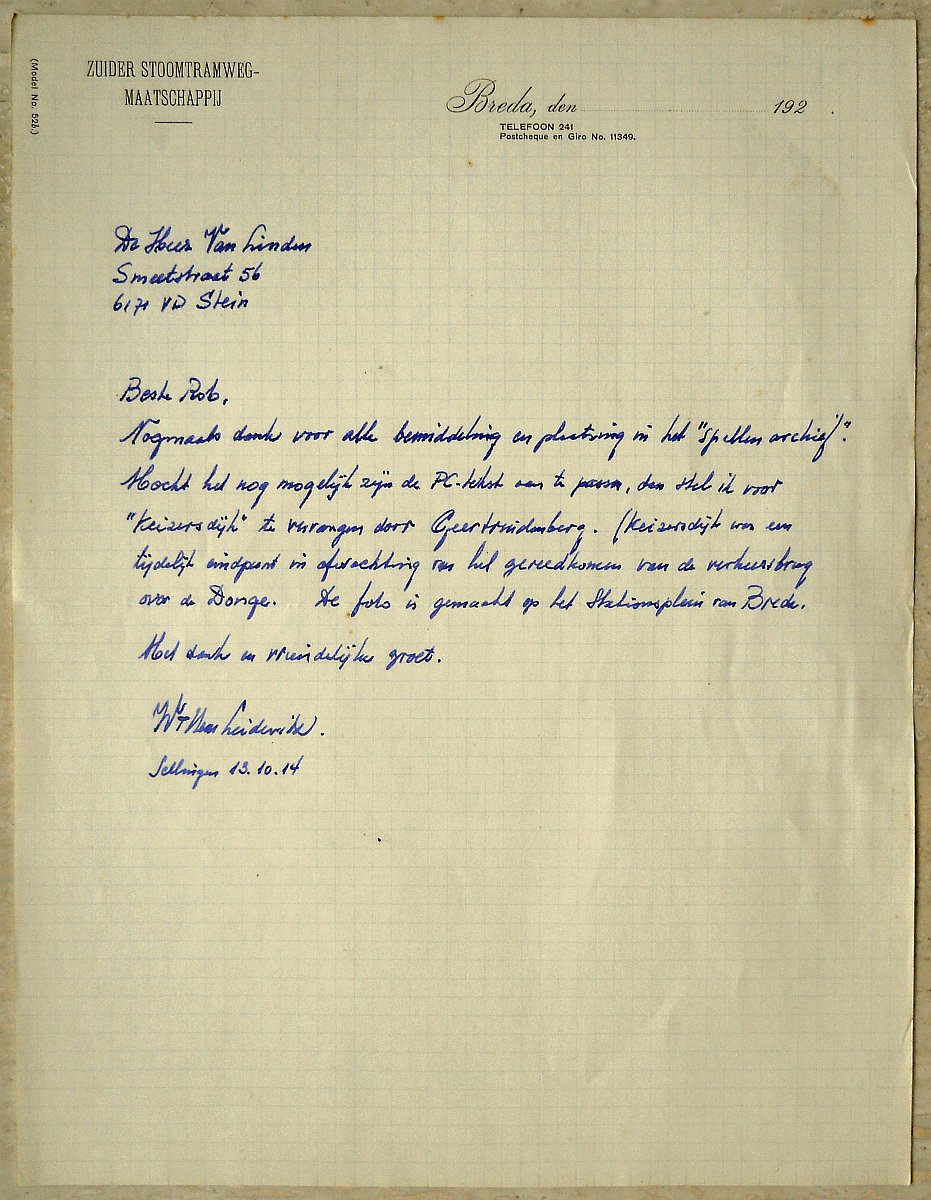 (Model No. 526.)
ZUIDER STOOMTRAMWEG-
MAATSCHAPPIJ
Breda, den 192 .
TELEFOON 241
Postcheque en Giro No. 11349.
De Heer Van Linden
Smeetstraat 56
6171 VD Stein
Beste Rob,
Nogmaals dank voor alle bemiddeling en plaatsing in het "Spellen archief".
Mocht het nog mogelijk zijn de PC-tekst aan te passen, dan stel ik voor
"Keizersdijk" te vervangen door Geertruidenberg. (Keizersdijk was een
tijdelijk eindpunt in afwachting van het gereedkomen van de verkeersbrug
over de Donge. De foto is gemaakt op het Stationsplein van Breda.
Met dank en vriendelijke groet.
Sellingen 13.10.14